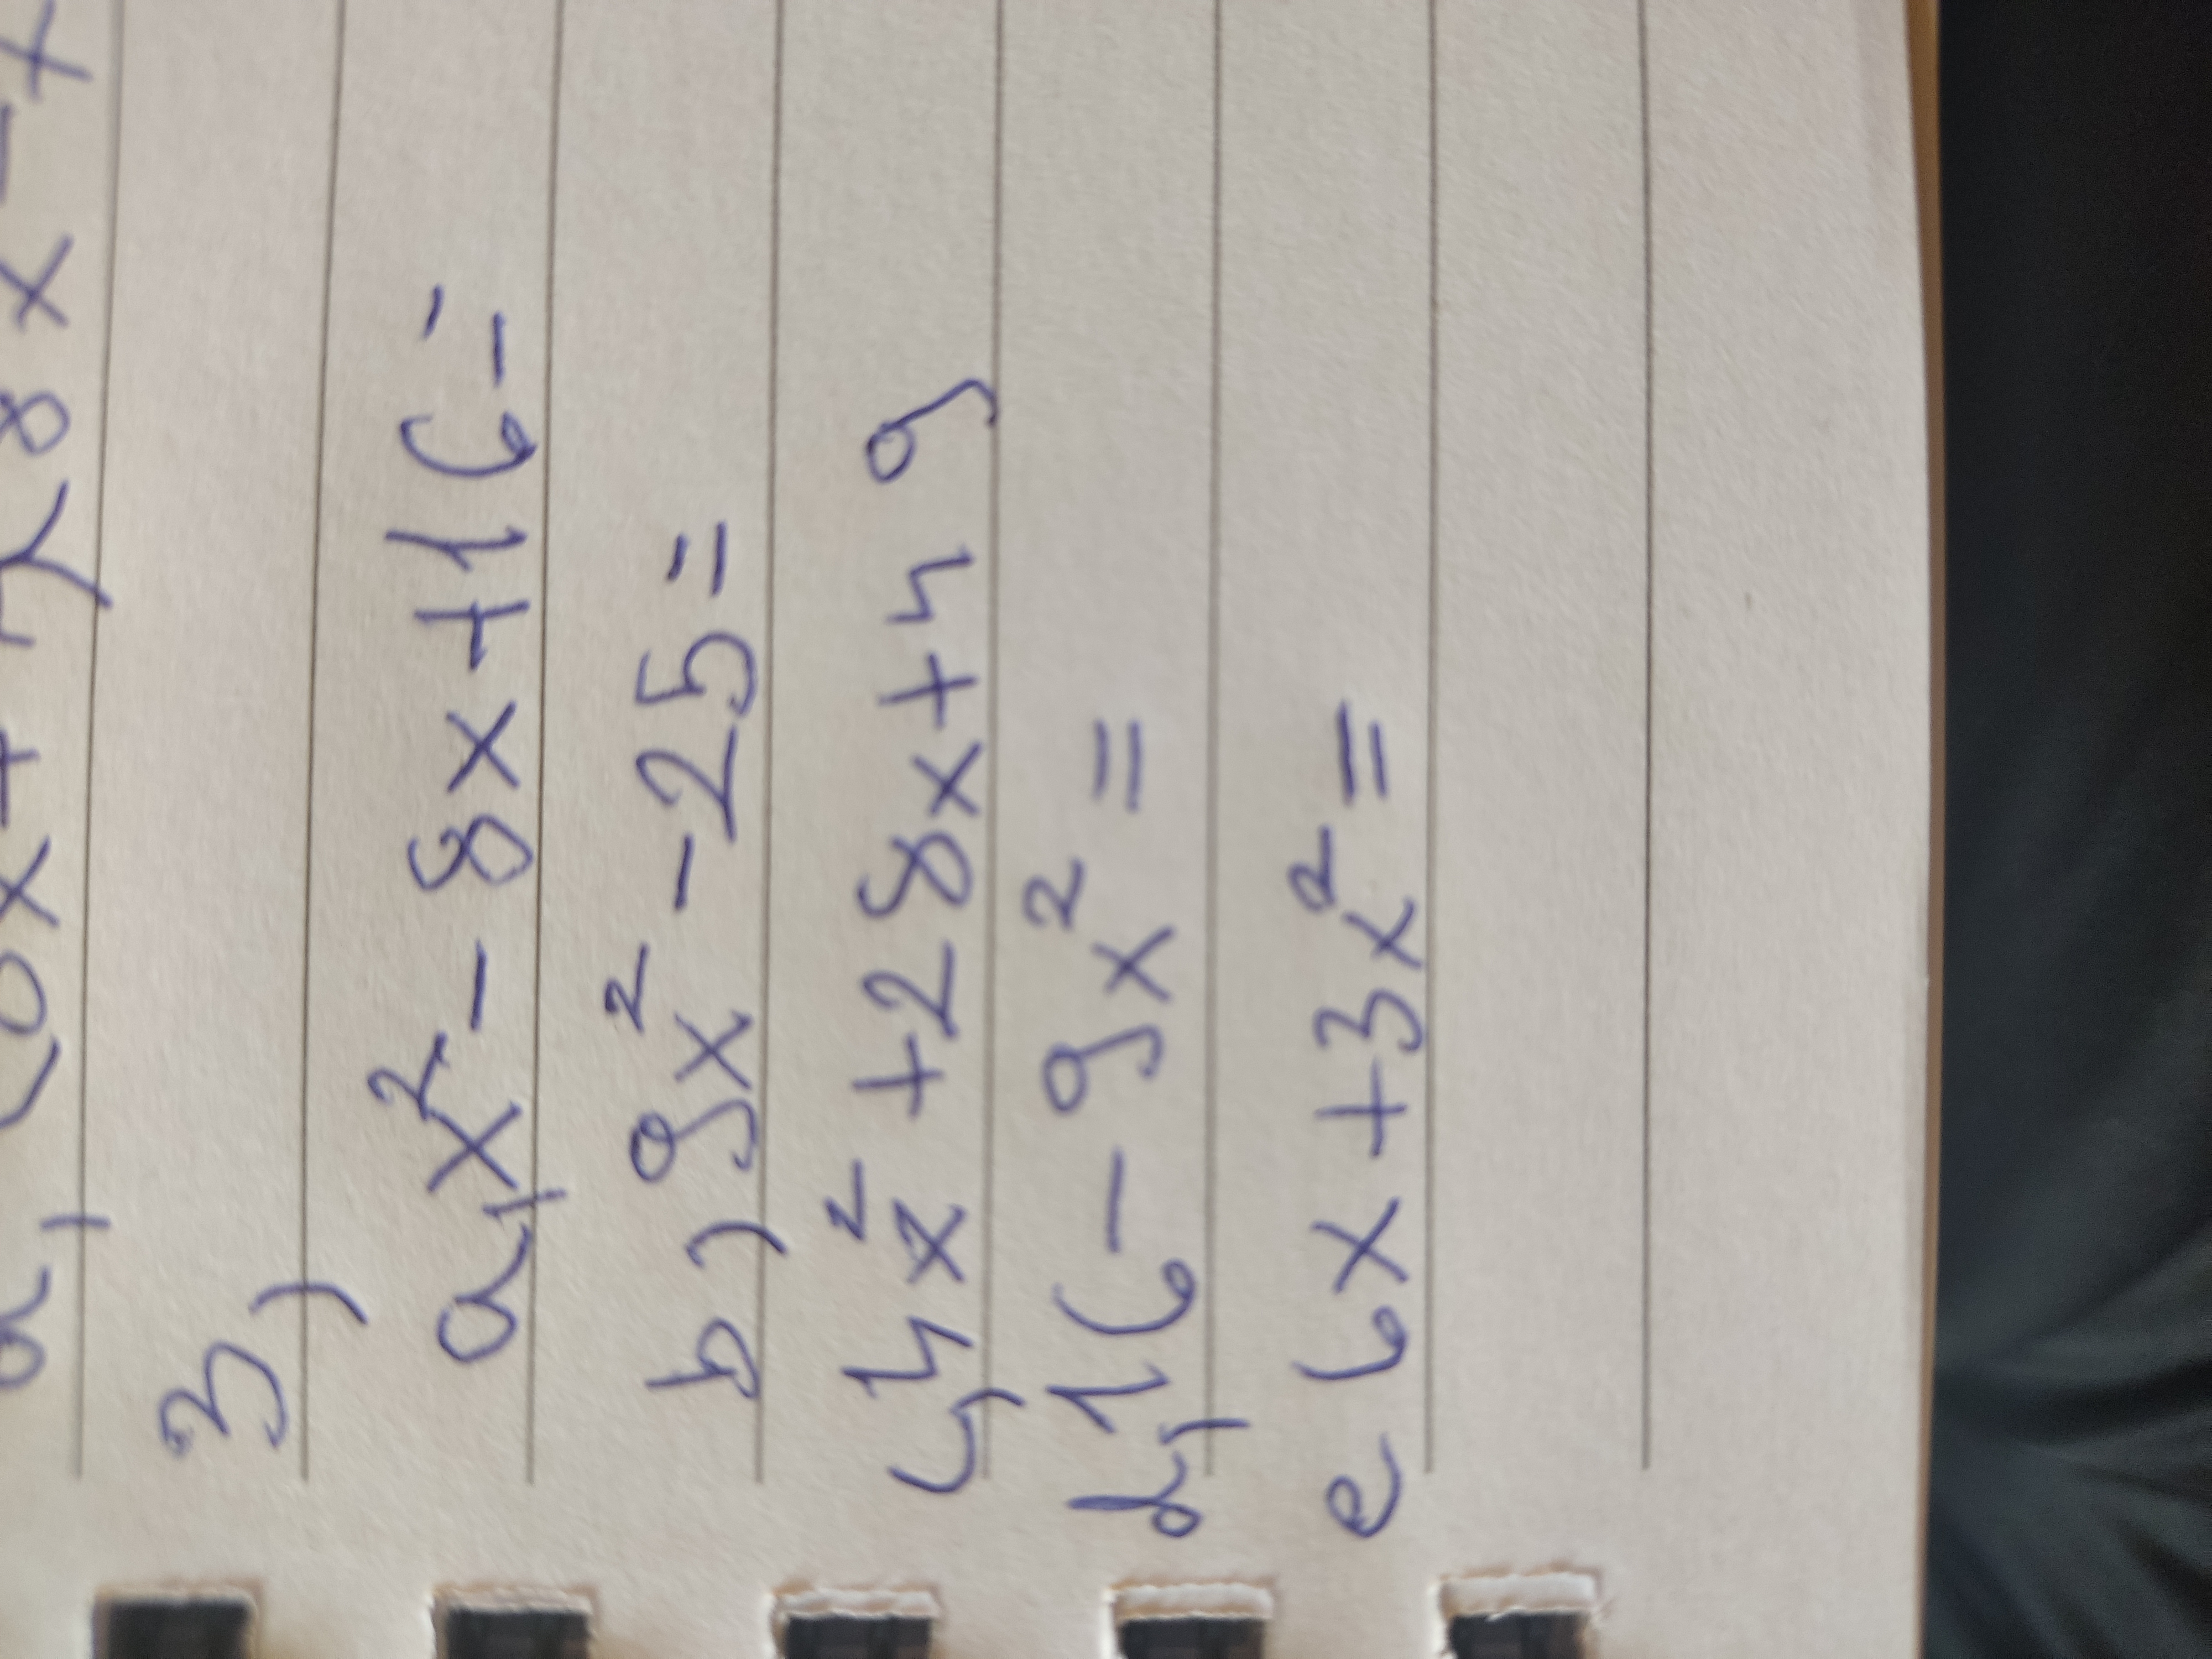 3)
a, x² - 8x + 16 =
b) 9x² - 25 =
c, 4x² + 28x + 49
d, 16 - 9x² =
e 6x + 3x² =